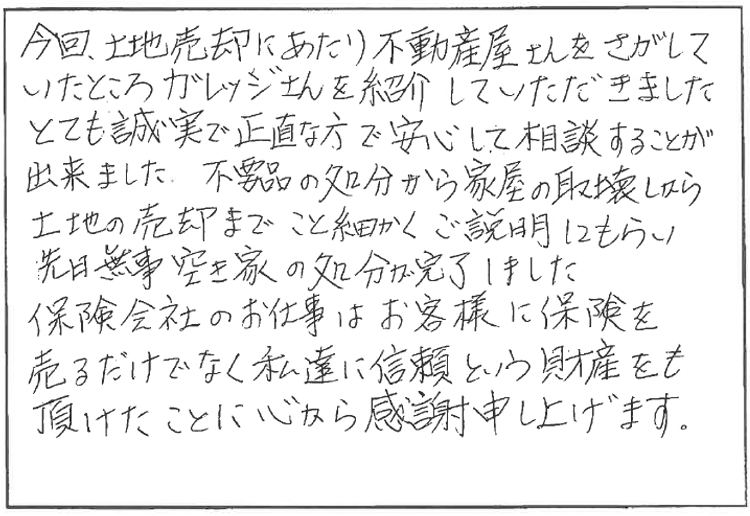 今回、土地売却にあたり不動産屋さんをさがして
いたところガレッジさんを紹介していただきました
とても誠実で正直な方で安心して相談することが
出来ました。不要品の処分から家屋の取壊しから
土地の売却までこと細かくご説明にもらい
先日無事空き家の処分が完了しました
保険会社のお仕事はお客様に保険を
売るだけでなく私達に信頼という財産をも
頂けたことに心から感謝申し上げます。